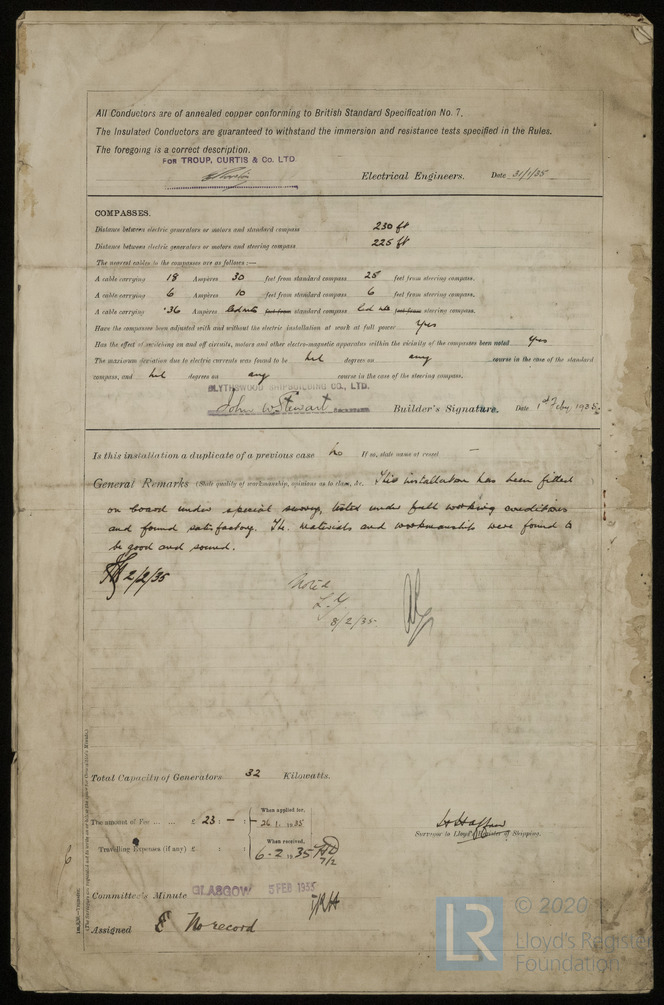 All Conductors are of annealed copper conforming to British Standard Specification No. 7.
The Insulated Conductors are guaranteed to withstand the immersion and resistance tests specified in the Rules.
The foregoing is a correct description.
FOR TROUP, CURTIS & Co. LTD.
Electrical Engineers. Date 31/1/35
COMPASSES.
Distance between electric generators or motors and standard compass 230 ft
Distance between electric generators or motors and steering compass 225 ft
The nearest cables to the compasses are as follows:—
A cable carrying 18 Ampères 30 feet from standard compass 25 feet from steering compass.
A cable carrying 6 Ampères 10 feet from standard compass 6 feet from steering compass.
A cable carrying .36 Ampères led into feet from standard compass led into feet from steering compass.
Have the compasses been adjusted with and without the electric installation at work at full power yes
Has the effect of switching on and off circuits, motors and other electro-magnetic apparatus within the vicinity of the compasses been noted yes
The maximum deviation due to electric currents was found to be nil degrees on any course in the case of the standard
compass, and nil degrees on any course in the case of the steering compass.
BLYTHSWOOD SHIPBUILDING CO., LTD.
John W Stewart Builder's Signature. Date 1st Feby 1935.
Is this installation a duplicate of a previous case no If so, state name of vessel —
General Remarks (State quality of workmanship, opinions as to class, &c. This installation has been fitted
on board under special survey, tested under full working conditions
and found satisfactory. The materials and workmanship were found to
be good and sound.
2/2/35
Noted
8/2/35.
Total Capacity of Generators 32 Kilowatts.
The amount of Fee ... ... £ 23 : — : —
When applied for,
26.1.1935
Travelling Expenses (if any) £ : :
When received,
6.2.1935
7/2
Surveyor to Lloyd's Register of Shipping.
Committee's Minute GLASGOW 5 FEB 1935
Assigned No record
© 2020
LR
Lloyd's Register
Foundation